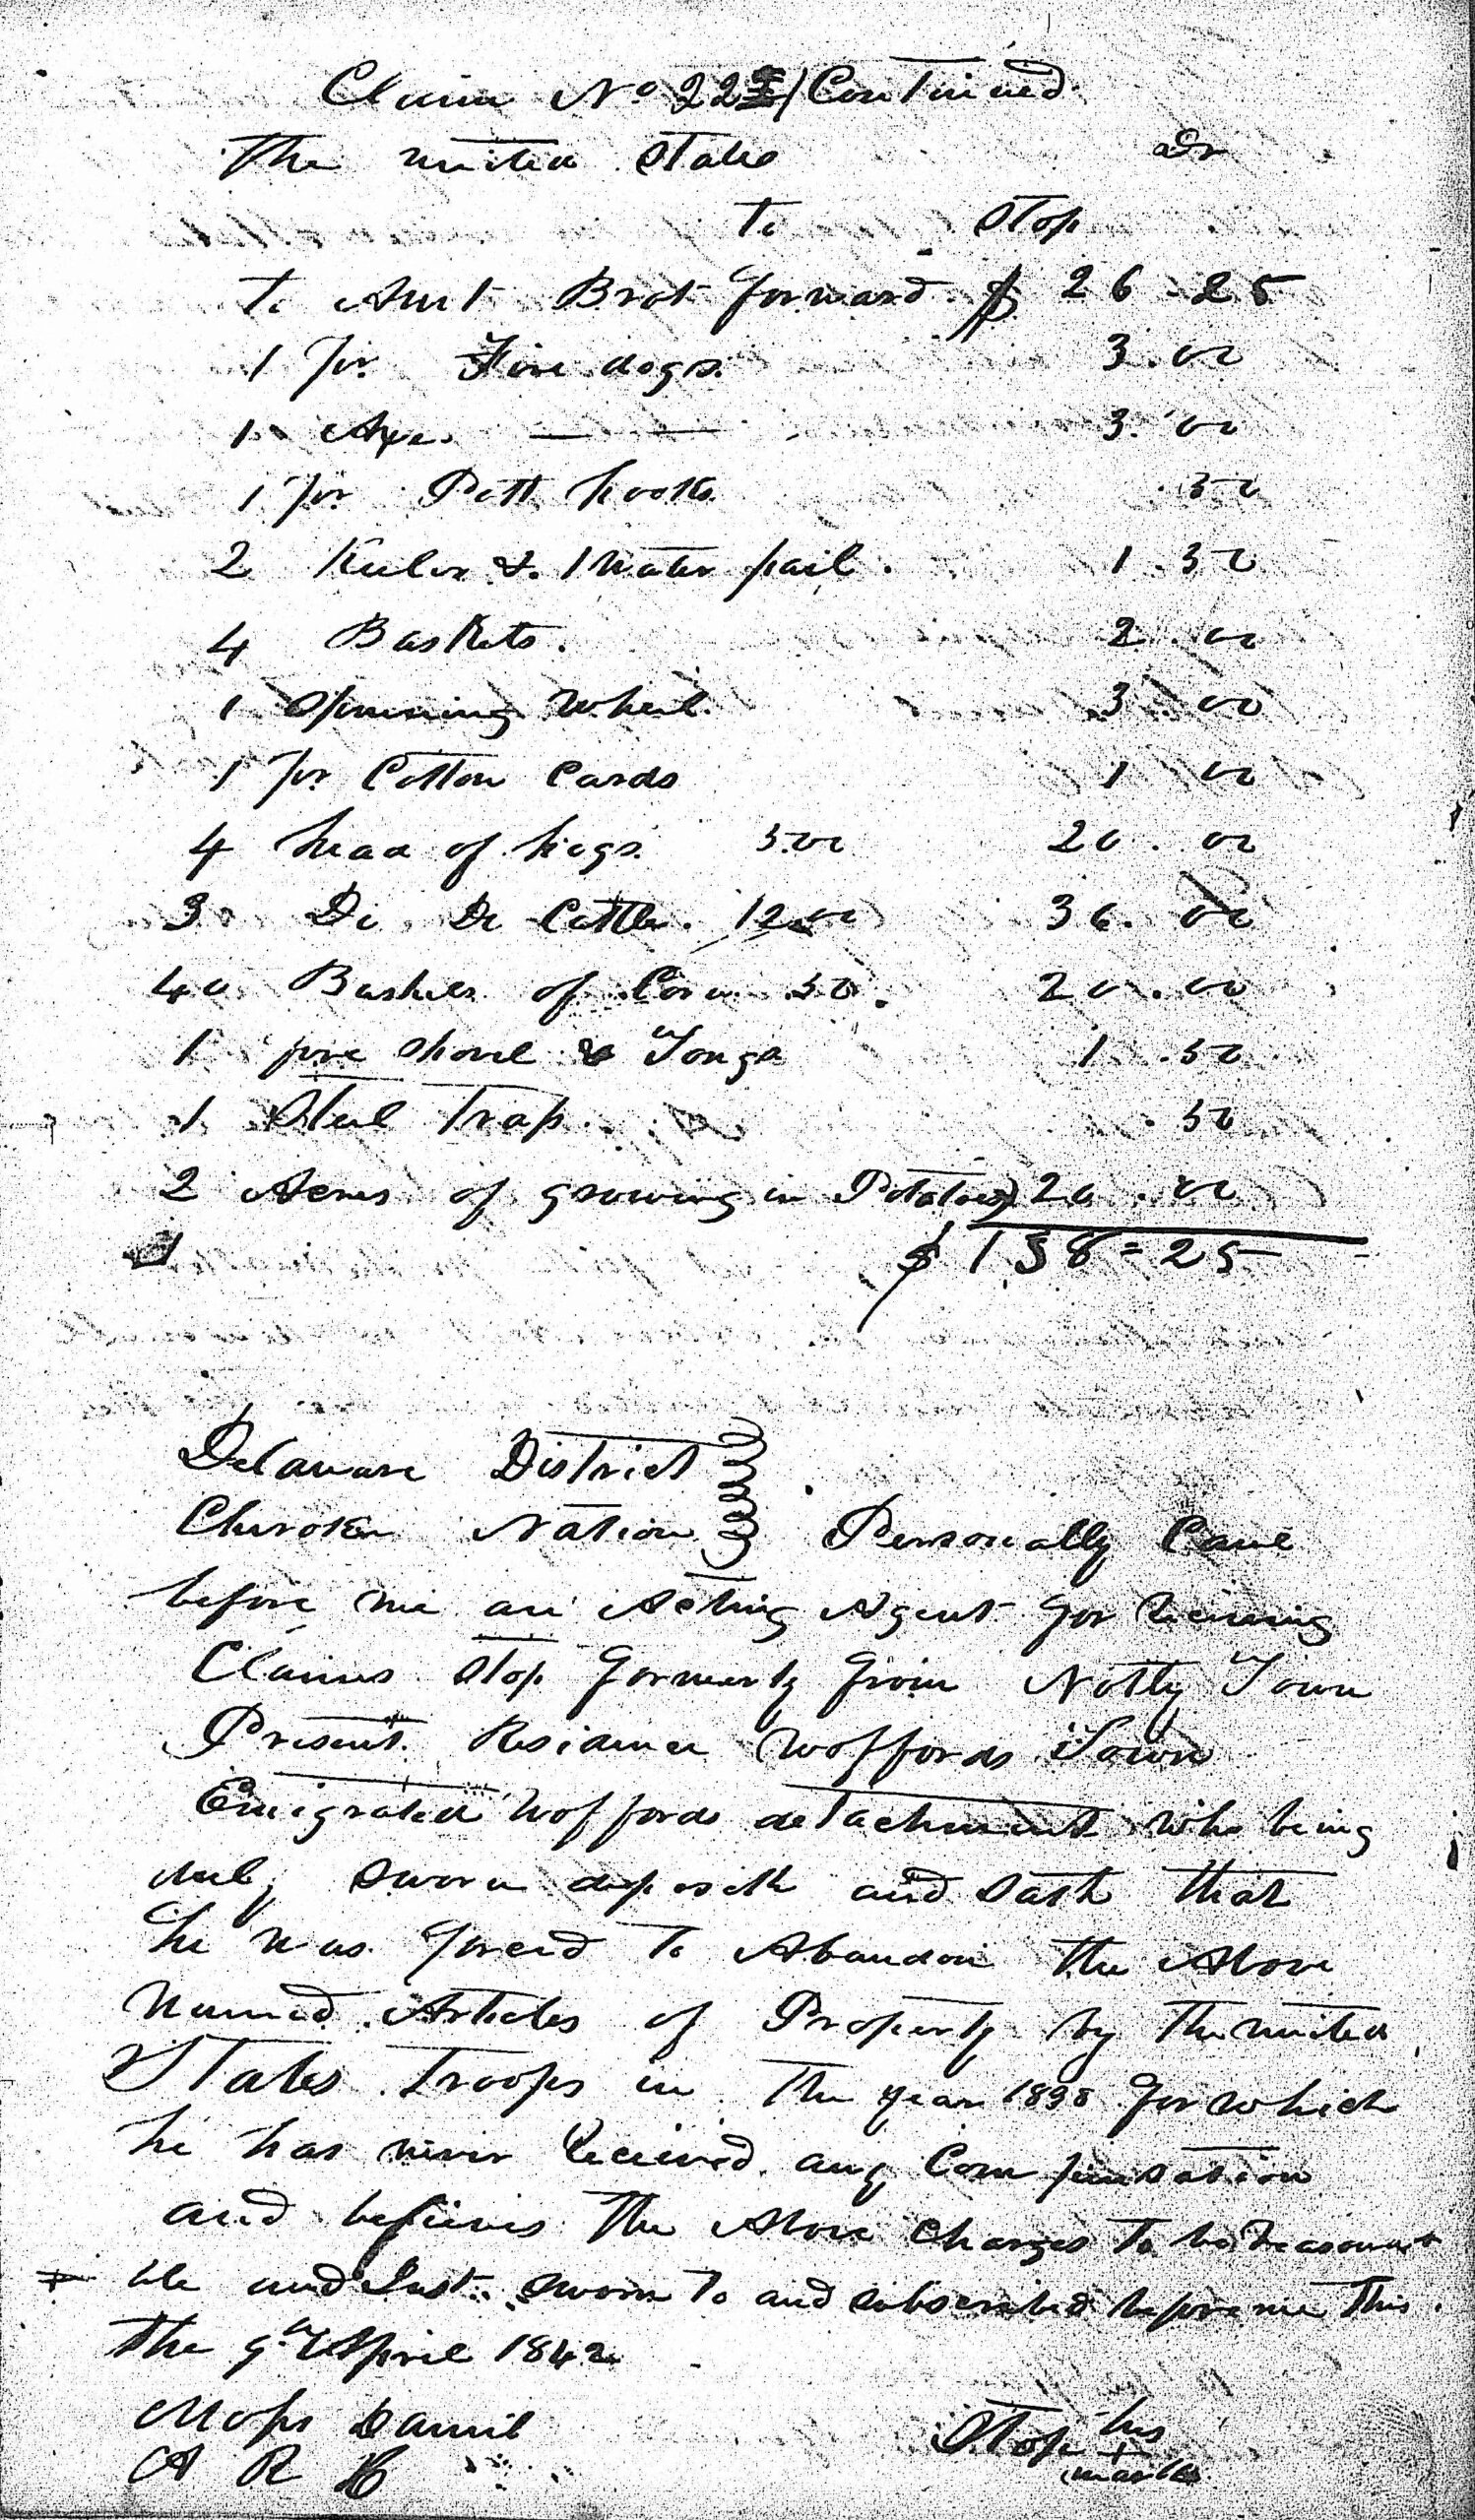 Claim No 22 / Continued
The united States Dr
To Stop
To Amt Brot forward $ 26.25
1 pr Fire dogs. 3.00
1 Axe. — — 3.00
1 pr Pott hooks .50
2 Keelers & 1 water pail. 1.50
4 Baskets. 2.00
1 Spinning Wheel. 3.00
1 pr Cotton Cards 1 00
4 head of hogs. 5.00 20.00
3 Do Do Cattle. 12.00 36.00
40 Bushels of Corn .50. 20.00
1 fire shovel & Tongs 1.50
1 Steel Trap. .50
2 Acres of growing in Potatoes) 20.00
$ 138=25
Delaware District
Cherokee Nation Personally Came
before me an Acting Agent for Receiving
Claims Stop formerly from Notty Town
Present Residence Woffords Town
Emigrated Woffords detachment who being
duly sworn deposeth and Saith that
he was forced To Abandon the Above
Named Articles of Property by The united
States Troops in The year 1838 for which
he has never Received any Compensation
and believes The Above Charges To be Reasona
ble and Just. Sworn To and subscribed before me This
The 9th April 1842
Moses Daniel Stop his
A R C + mark